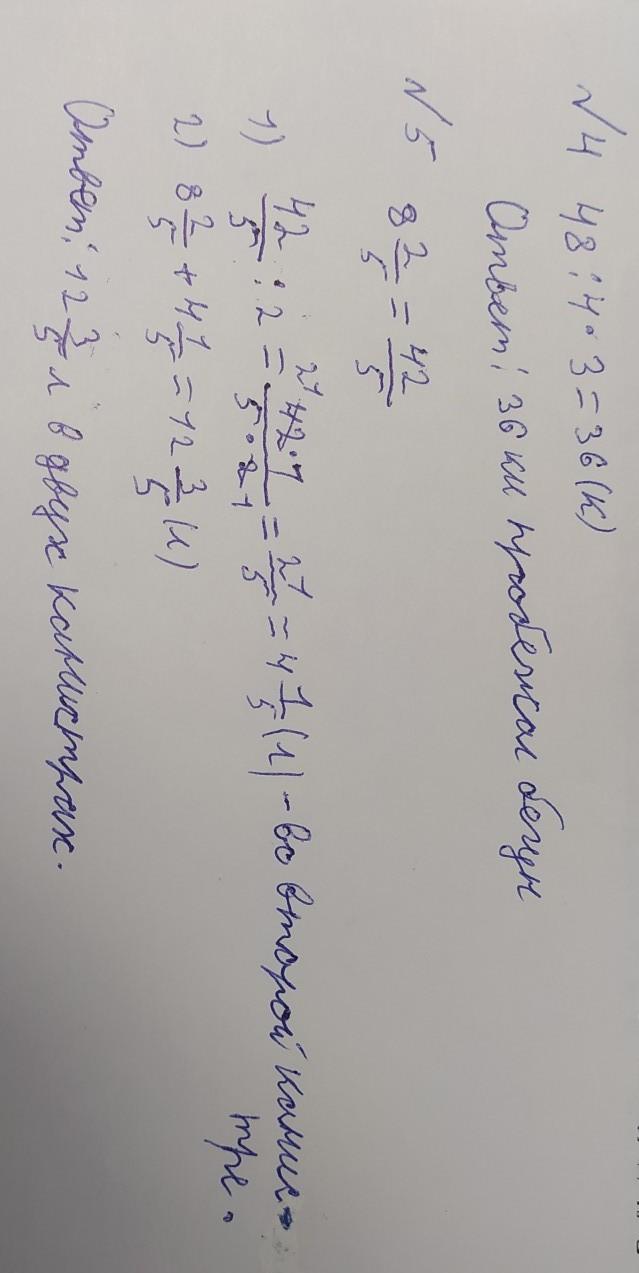 №4 48:4·3=36(к)
Ответ: 36 км пробежал бегун
№5 8 2/5 = 42/5
1) 42/5 : 2 = 21 42·1/5·2 1 = 21/5 = 4 1/5 (л) - во второй канис-
тре.
2) 8 2/5 + 4 1/5 = 12 3/5 (л)
Ответ: 12 3/5 л в двух канистрах.